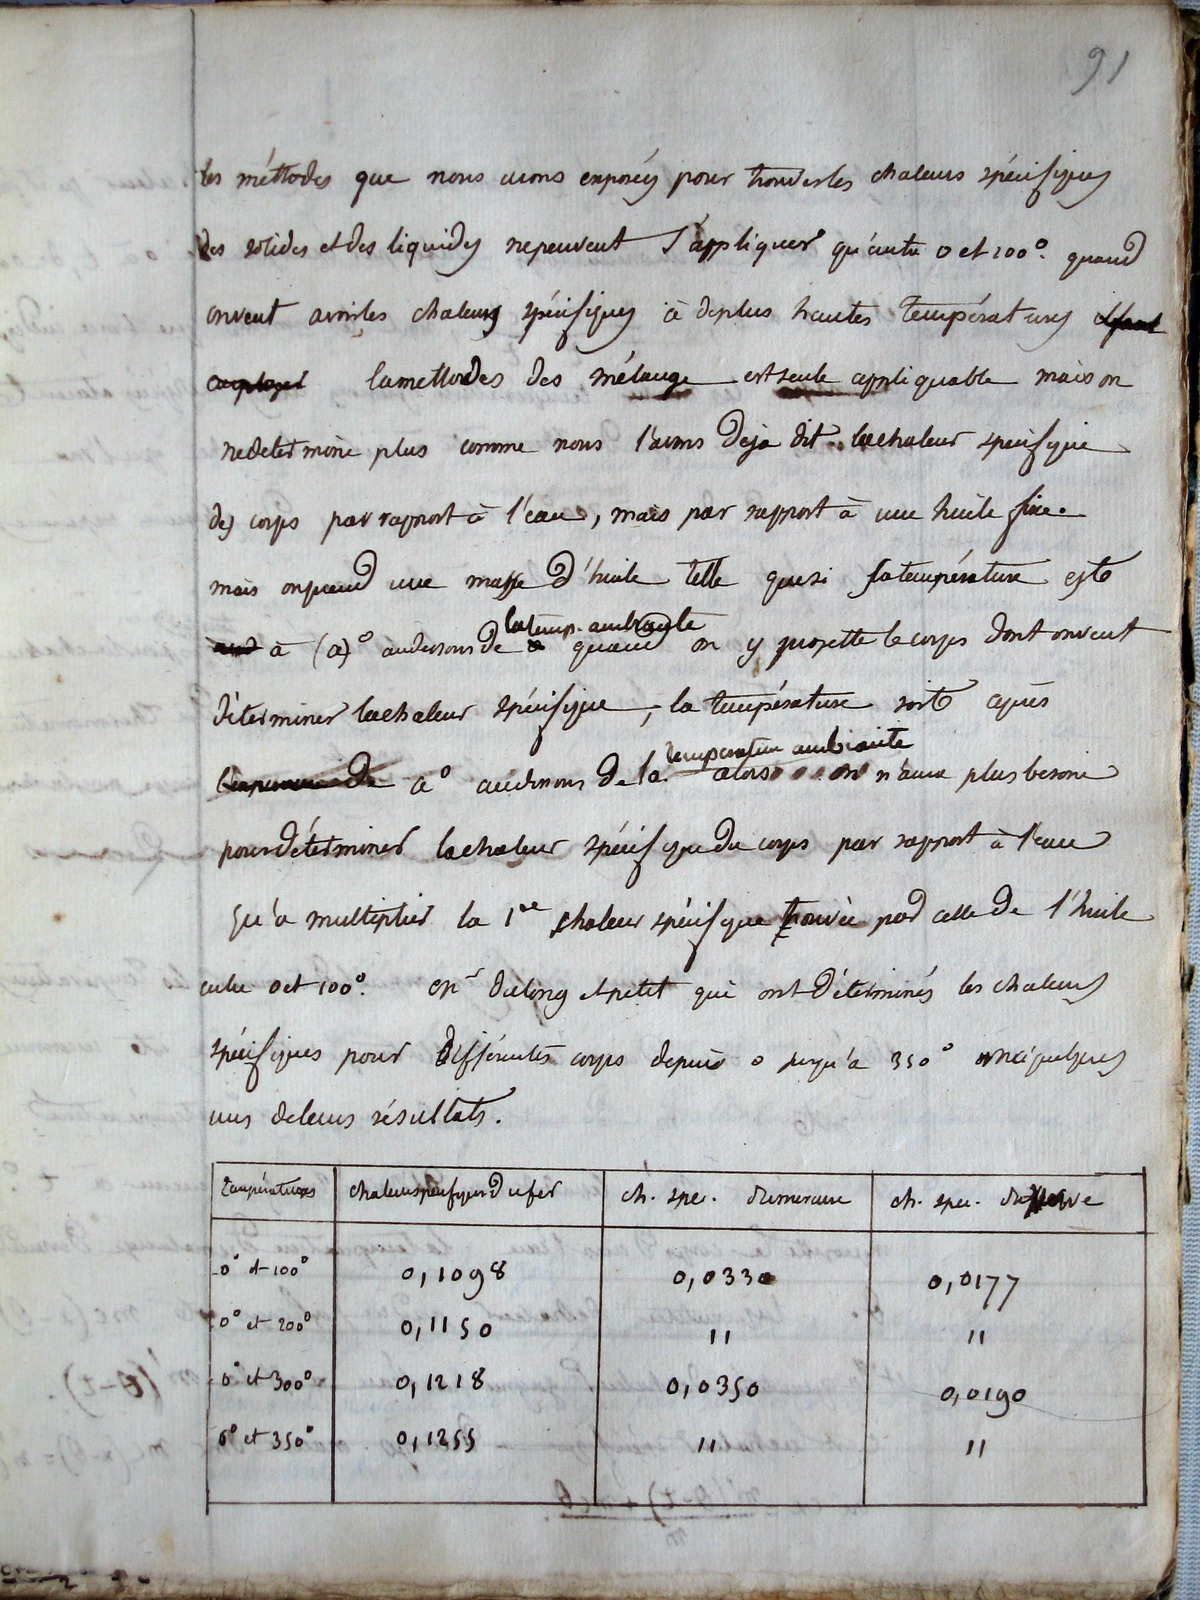 91
les méttodes que nous avons exposées pour trouver les chaleurs spécifiques
des solides et des liquides ne peuvent s'appliquer qu'entre 0 et 100°. quand
on veut avoir les chaleurs spécifiques à de plus hautes températures il faut
employer la mettode des des mélange est seule appliquable mais on
ne determine plus comme nous l'avons deja dit la chaleur specifique
des corps par rapport à l'eau, mais par rapport à une huile fixe.
mais on prend une masse d'huile telle que si sa température est
à (a)° au dessous de la temp. ambiante quand on y projette le corps dont on veut
déterminer la chaleur spécifique, la température soit après
l'experience de a° au dessus de la température ambiante alors on n'aura plus besoin
pour déterminer la chaleur spécifique du corps par rapport à l'eau
qu'a multiplier la 1re chaleur spécifique trouvée par celle de l'huile
entre 0 et 100°. dulong et petit qui ont déterminés les chaleurs
spécifiques pour différentes corps depuis 0 jusqu'a 350° quelques
uns de leurs résultats.
Températures chaleur spécifique du fer ch. spec. du mercure ch. spec. du
0° et 100° 0,1098 0,0330 0,0177
0° et 200° 0,1150 " "
0° et 300° 0,1218 0,0350 0,0190
0° et 350° 0,1255 " "